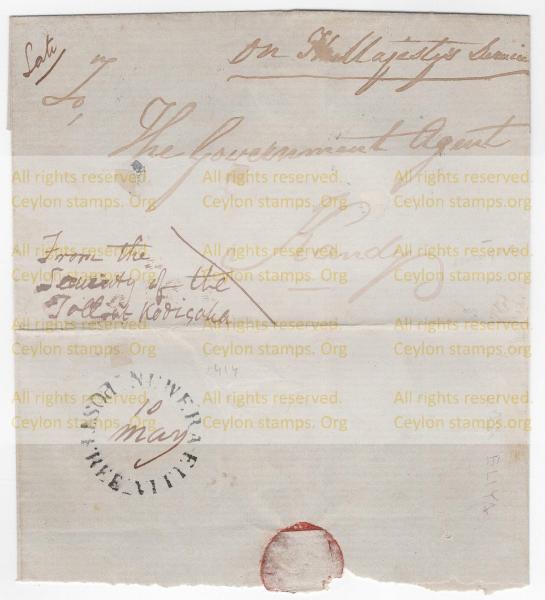 Late
On Her Majesty's Service
To,
The Government Agent
Kandy
From the
Security of the
Toll at Kodigaha
NUWERA ELLIA
POST FREE
10
may
ELIYA
All rights reserved. All rights reserved. All rights reserved.
Ceylon stamps. Org Ceylon stamps. Org Ceylon stamps. Org
All rights reserved. All rights reserved. All rights reserved.
Ceylon stamps. Org Ceylon stamps. Org Ceylon stamps. Org
All rights reserved. All rights reserved. All rights reserved.
Ceylon stamps. Org Ceylon stamps. Org Ceylon stamps. Org
All rights reserved. All rights reserved. All rights reserved.
Ceylon stamps. Org Ceylon stamps. Org Ceylon stamps. Org